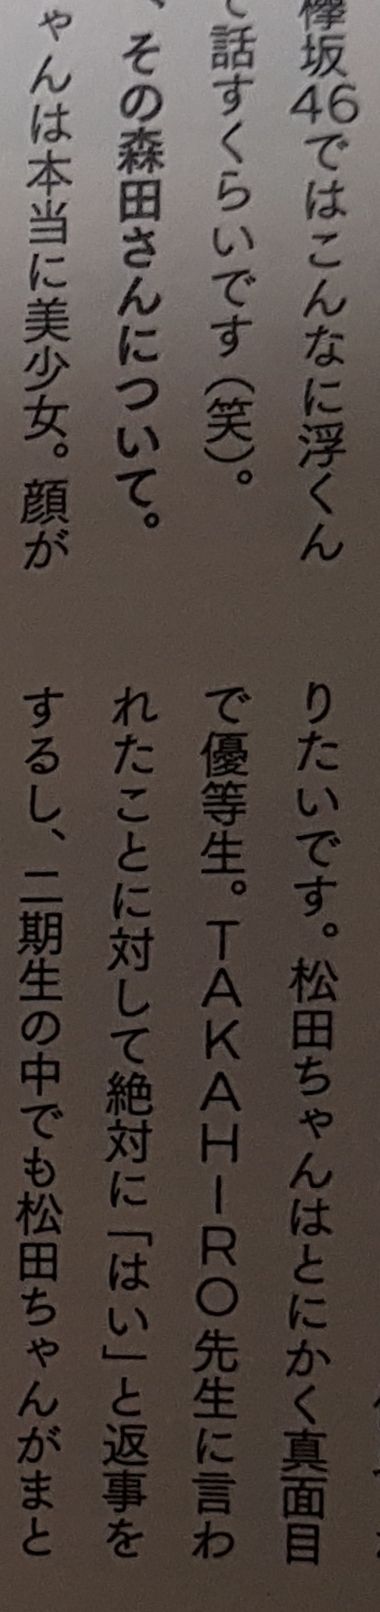 欅坂46ではこんなに浮くん
て話すくらいです（笑）。
、その森田さんについて。
ゃんは本当に美少女。顔が
りたいです。松田ちゃんはとにかく真面目
で優等生。TAKAHIRO先生に言わ
れたことに対して絶対に「はい」と返事を
するし、二期生の中でも松田ちゃんがまと